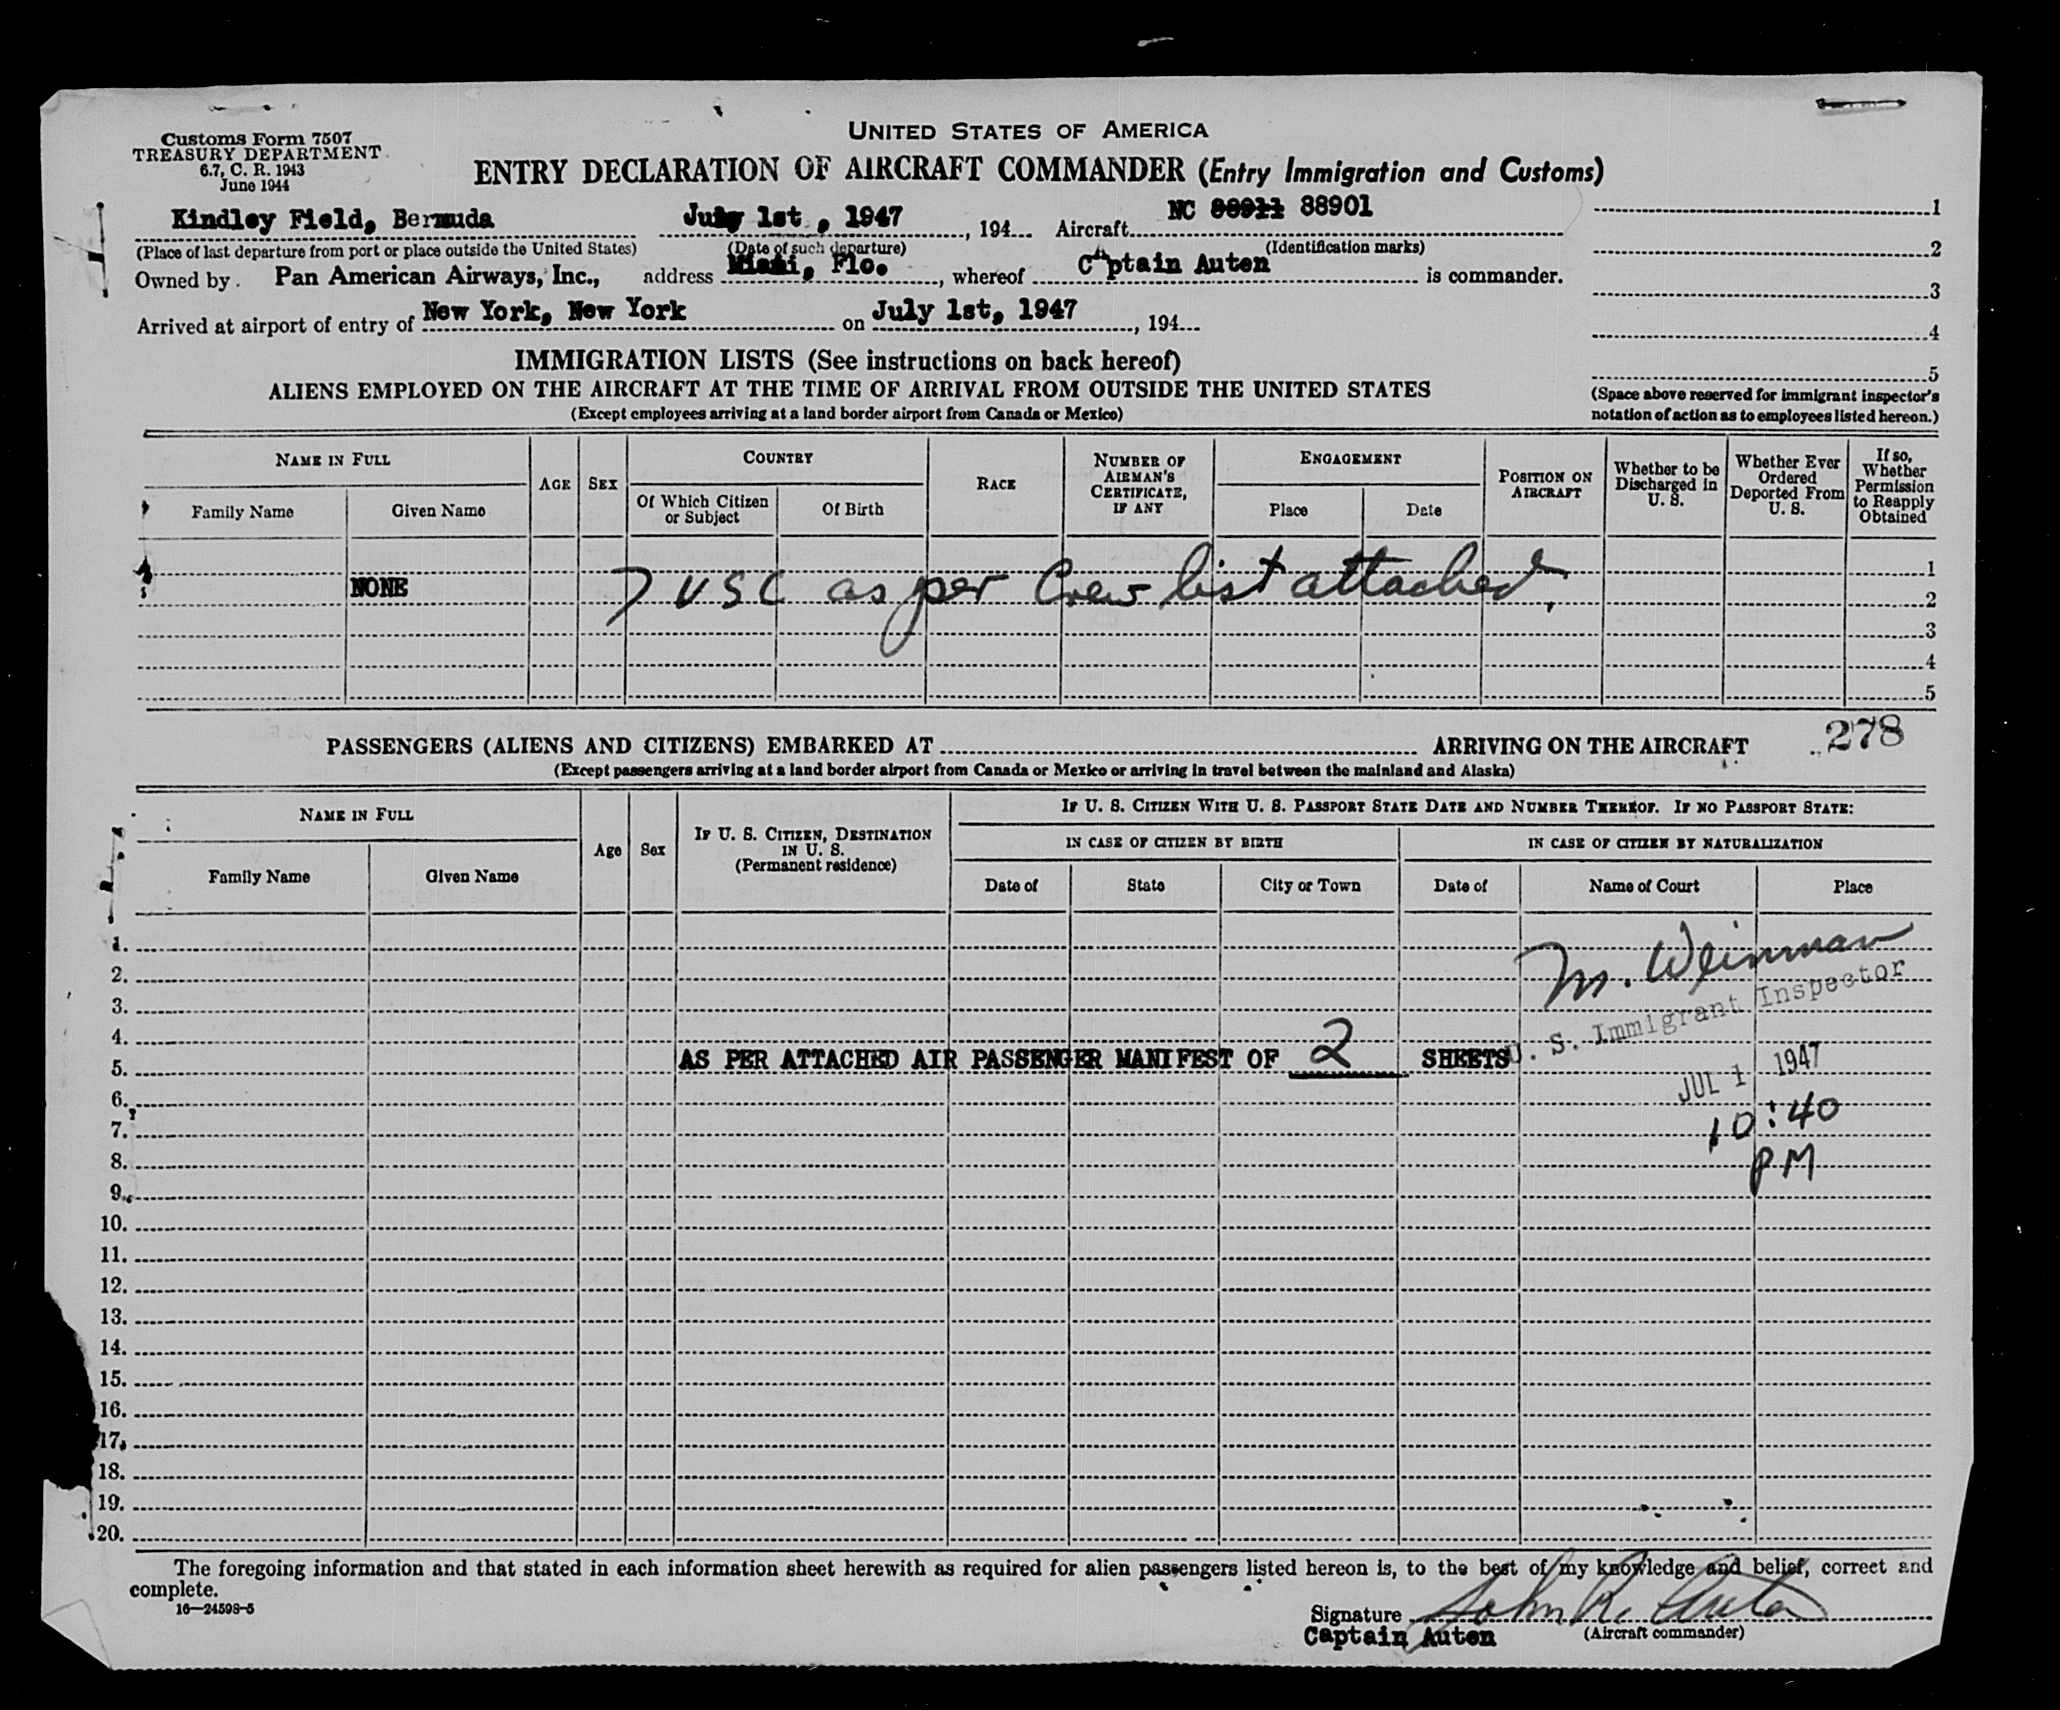 UNITED STATES OF AMERICA
Customs Form 7507
TREASURY DEPARTMENT
6.7, C. R. 1943
June 1944
ENTRY DECLARATION OF AIRCRAFT COMMANDER (Entry Immigration and Customs)
Kindley Field, Bermuda July 1st, 1947, 194 Aircraft NC 88901
(Place of last departure from port or place outside the United States) (Date of such departure) (Identification marks)
Owned by Pan American Airways, Inc., address Miami, Flo. , whereof Captain Auten is commander.
Arrived at airport of entry of New York, New York on July 1st, 1947, 194
1
2
3
4
5
(Space above reserved for immigrant inspector's
notation of action as to employees listed hereon.)
IMMIGRATION LISTS (See instructions on back hereof)
ALIENS EMPLOYED ON THE AIRCRAFT AT THE TIME OF ARRIVAL FROM OUTSIDE THE UNITED STATES
(Except employees arriving at a land border airport from Canada or Mexico)
NAME IN FULL
Family Name
Given Name
AGE
SEX
COUNTRY
Of Which Citizen
or Subject
Of Birth
RACE
NUMBER OF
AIRMAN'S
CERTIFICATE,
IF ANY
ENGAGEMENT
Place
Date
POSITION ON
AIRCRAFT
Whether to be
Discharged in
U. S.
Whether Ever
Ordered
Deported From
U. S.
If so,
Whether
Permission
to Reapply
Obtained
NONE
7 USC as per Crew list attached.
1
2
3
4
5
278
PASSENGERS (ALIENS AND CITIZENS) EMBARKED AT ARRIVING ON THE AIRCRAFT
(Except passengers arriving at a land border airport from Canada or Mexico or arriving in travel between the mainland and Alaska)
NAME IN FULL
Family Name
Given Name
Age
Sex
IF U. S. CITIZEN, DESTINATION
IN U. S.
(Permanent residence)
IF U. S. CITIZEN WITH U. S. PASSPORT STATE DATE AND NUMBER THEREOF. IF NO PASSPORT STATE:
IN CASE OF CITIZEN BY BIRTH
Date of
State
City or Town
IN CASE OF CITIZEN BY NATURALIZATION
Date of
Name of Court
Place
1.
2.
3.
4.
5.
6.
7.
8.
9.
10.
11.
12.
13.
14.
15.
16.
17.
18.
19.
20.
M. Weinman
U. S. Immigrant Inspector
AS PER ATTACHED AIR PASSENGER MANIFEST OF 2 SHEETS
JUL 1 1947
10:40
PM
The foregoing information and that stated in each information sheet herewith as required for alien passengers listed hereon is, to the best of my knowledge and belief, correct and
complete.
16—24598-5
Signature John R. Auten
Captain Auten (Aircraft commander)